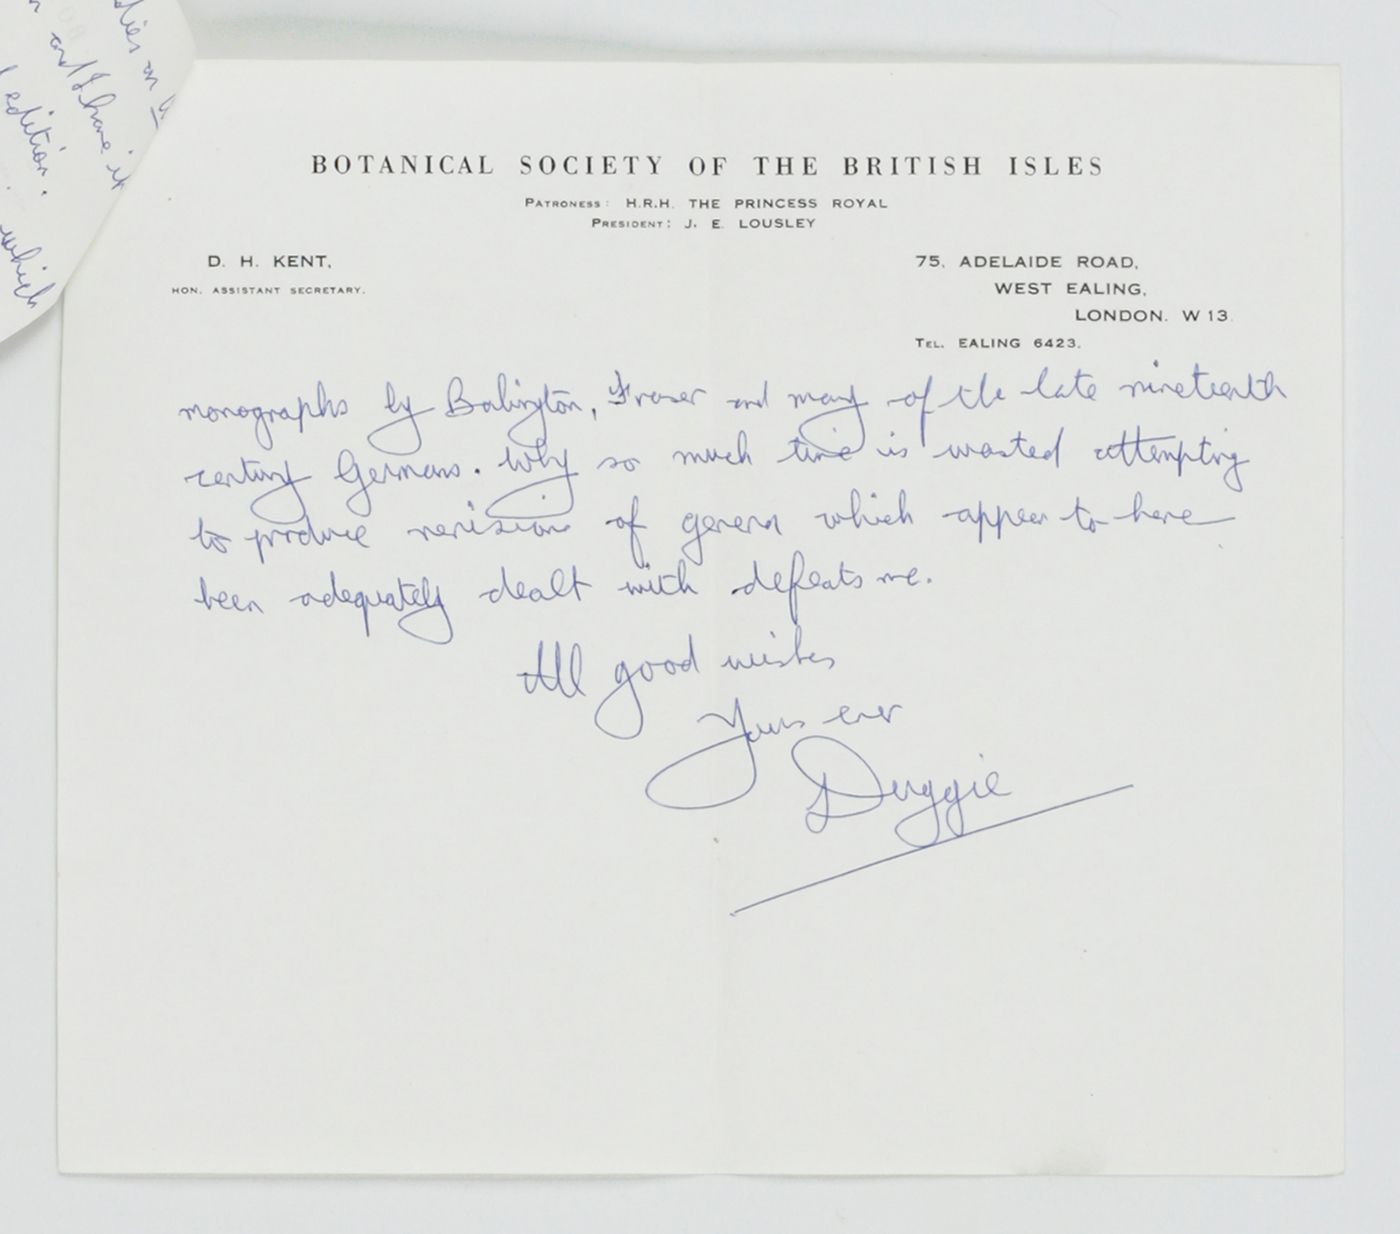 dies on
and I have it
edition.
which
BOTANICAL SOCIETY OF THE BRITISH ISLES
PATRONESS: H.R.H. THE PRINCESS ROYAL
PRESIDENT: J. E. LOUSLEY
D. H. KENT,
HON. ASSISTANT SECRETARY.
75, ADELAIDE ROAD,
WEST EALING,
LONDON. W 13.
TEL. EALING 6423.
monographs by Babington, Fraser and many of the late nineteenth
century Germans. Why so much time is wasted attempting
to produce revisions of genera which appear to have
been adequately dealt with defeats me.
All good wishes
Yours ever
Duggie